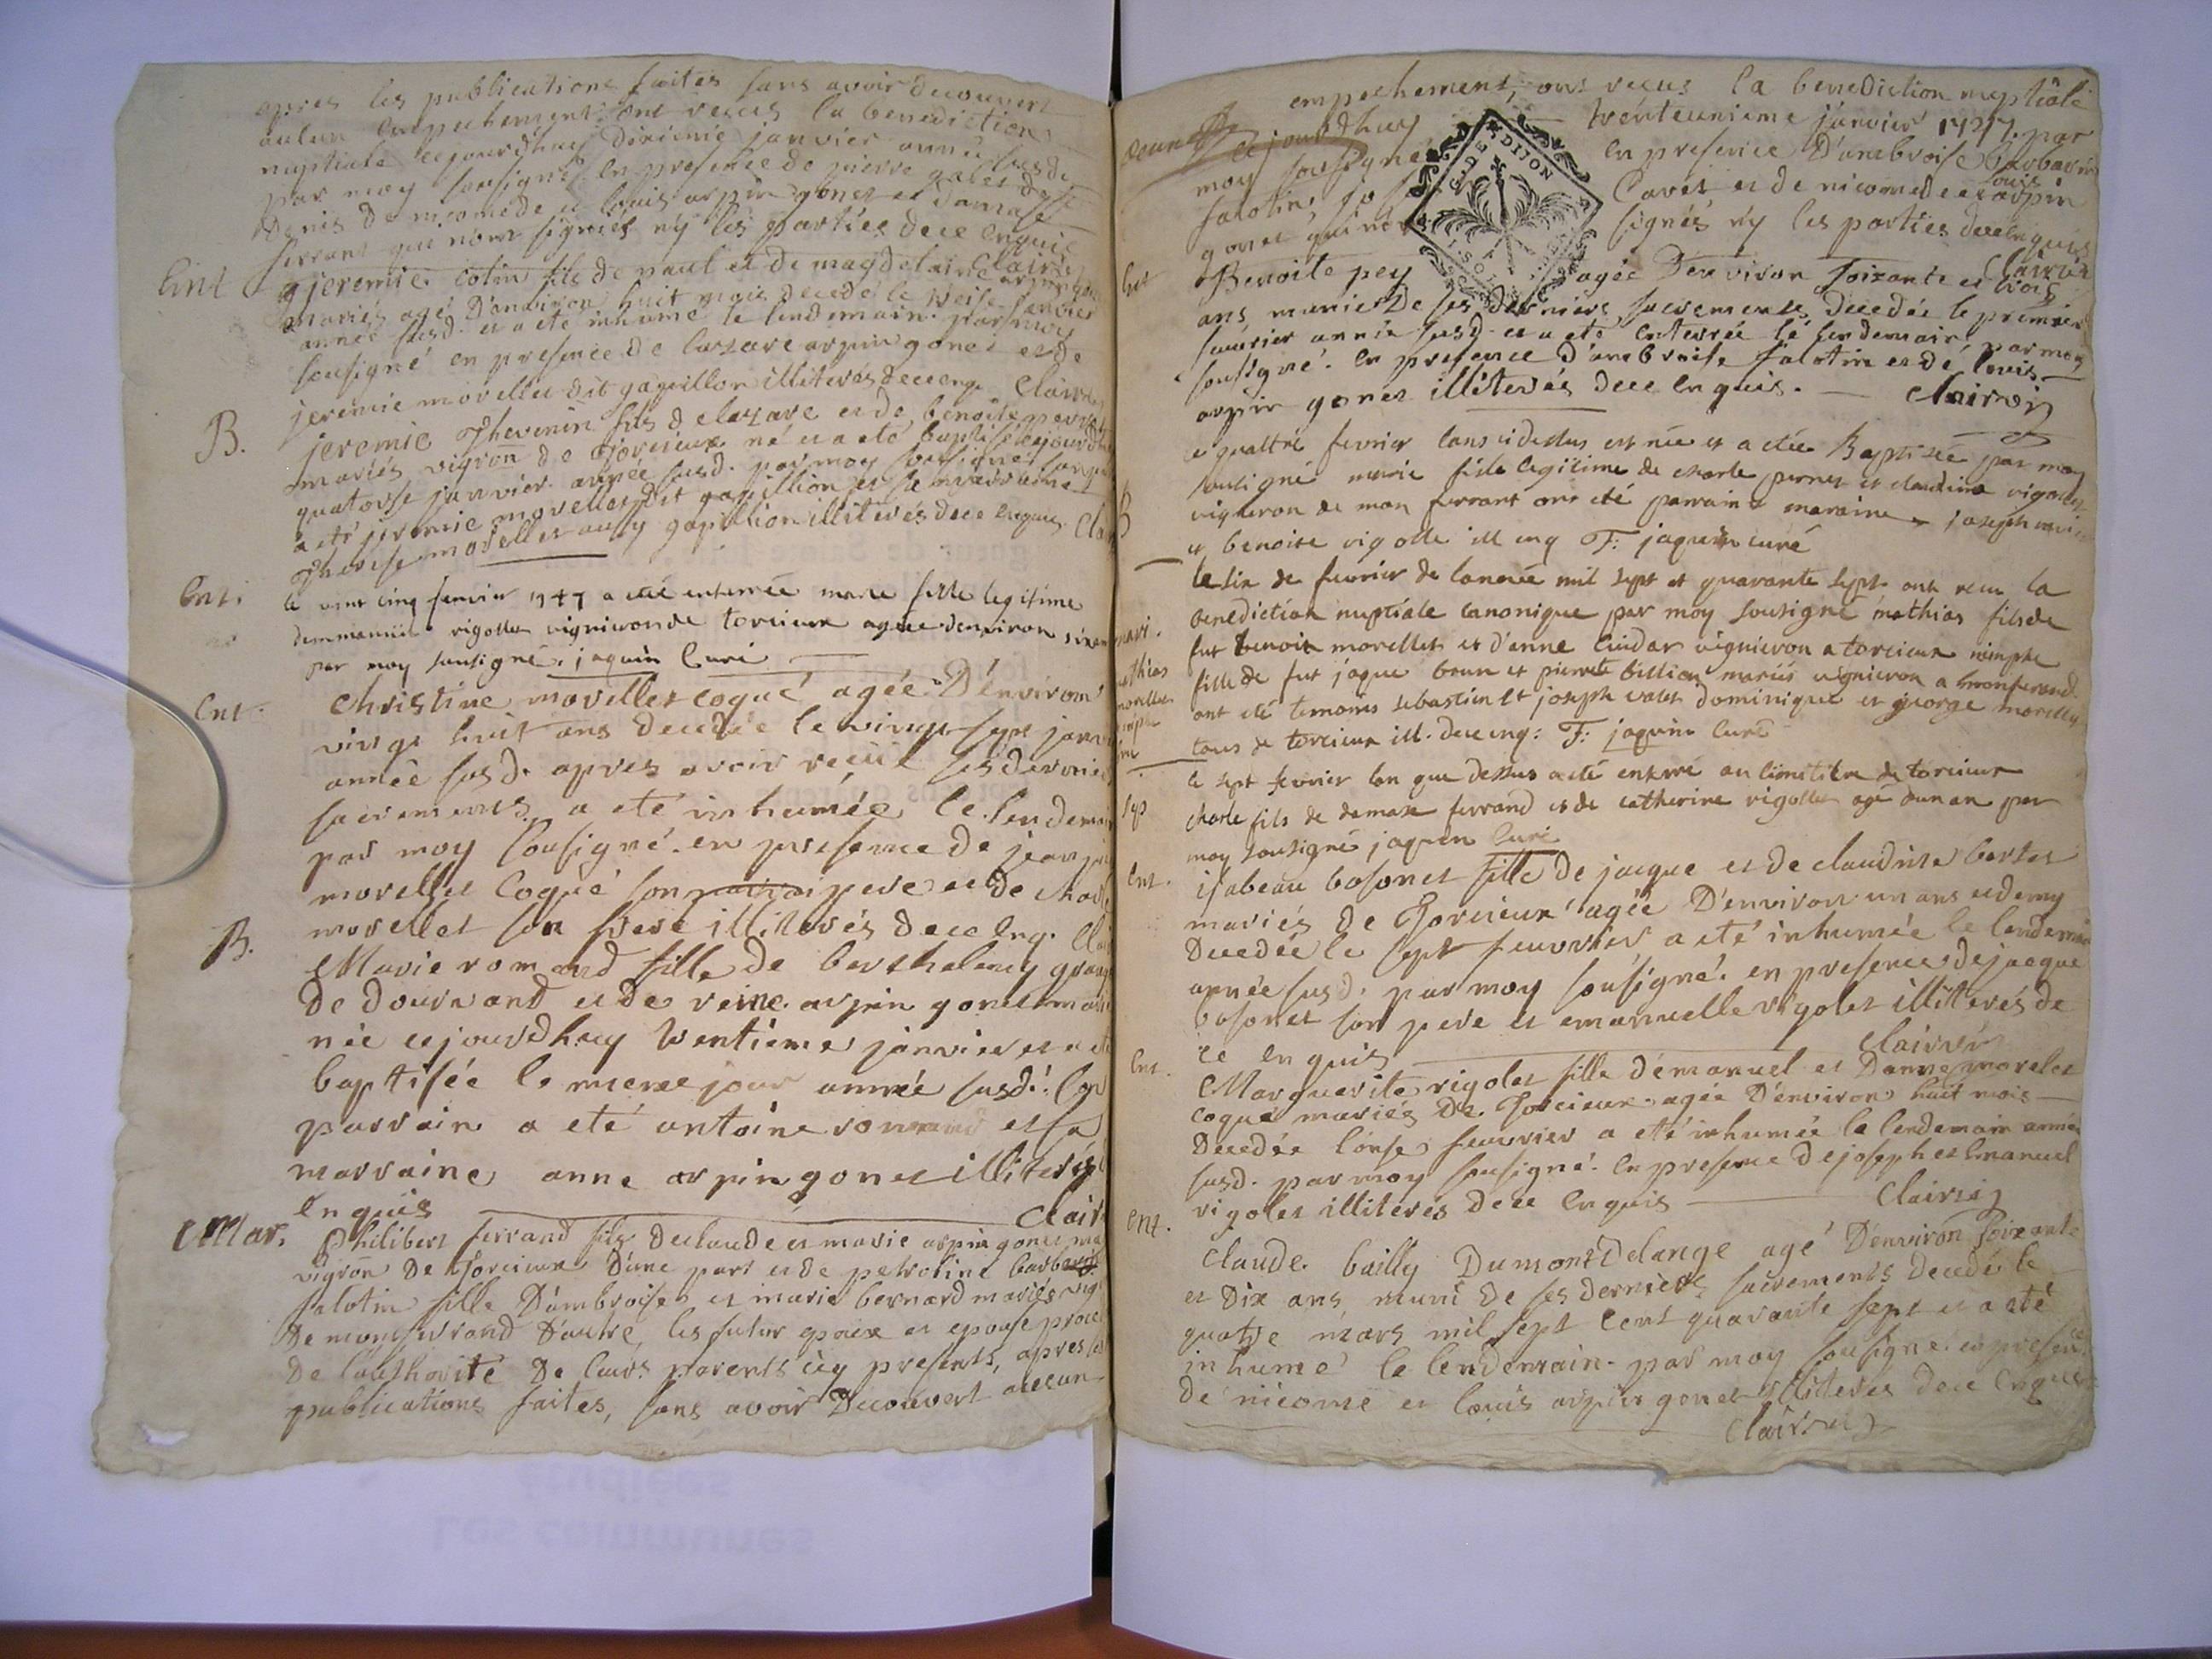 apres les publications faites sans avoir decouvert
aulun empechement ont recus la benediction
nuptiale cejourdhuy dixieme janvier année susde
par moy sousigné en presence de pierre
Denis de nicomede et louis arpin gonet et damase
ferrant qui nont signés ny les parties de ce enquis
Ent jeremie cotin fils de paul et de magdelaine arpin
mariés agé D'environ huit mois decedé le treise janvier
année susd. et a eté inhumé le lendemain par moy
sousigné en presence de lazare arpin gonet et de
jeremie morellet dit gapillon illiterés de ce enq.
B. jeremie Thevenin fils de lazare et de benoite
mariés vigron de Torcieux né et a eté baptisé cejourdhuy
quatorse janvier année susd. par moy sousigné
a eté jeremie morellet dit gapillion et la marraine
Therese morellet aussy gapillion illiteres de ce enquis
Ent. le vint cinq janvier 1747 a eté enterrée marie fille legitime
demmanuel rigollet vigniron de torcieux agée denviron
par moy sousigné. jaquin Curé
Ent. Christine morellet coqué agée D'environ
vingt huit ans decedée le vingt sept janv
année susd. apres avoir recüe ses dernie
sacrements a eté inhumée le lendemai
par moy sousigné. en presence de jean
morellet Coqué son pere et de charl
morellet son frere illiterés de ce enq. Clai
B. Marie romand fille de berthelemy
de dournand et de reine arpin gonet mari
née cejourdhuy trentiéme janvier et a eté
baptisée le meme jour année susd.
parrain a eté antoine romand et sa
marraine anne arpin gonet illiterés
enquis Clair
Mar. Philibert ferrand fils declaude et marie arpin gonet
vigron De Torcieux D'une part et de petroline
falotin fille D'ambroise et marie bernard mariés vig
De montferrand D'autre, les futur epoux et epouse
De l'authorité De leurs parents icy presents, apres les
publications faites, sans avoir Decouvert aucun
empechement, ont recus la benediction nuptiâle
cejourdhuy trenteunieme janvier 1747. par
moy sousigné en presence D'ambroise Barbarin
falotin, Cavet et de nicomede et louis arpin
gonet qui nont signés ny les parties de ce enquis
Clairvin
Ent Benoite pey agée D'environ soixante et trois
ans munie de ses derniers sacrements decedée le premier
feuvrier année susd. et a eté enterrée le lendemain par moy
sousigné. en presence d'ambroise falotin et de louis
arpin gonet illiterés de ce enquis.
B le quattre fevrier lans cidessus est née et a etée Baptisée par moy
sousigné marie fille legitime de charle pernet et claudine rigollet
vigneron de mon ferrant ont eté parrain & maraine joseph
et benoite rigolle ill enq F: jaquin curé
mari. le six de feuvrier de lannée mil sept et quarante sept ont recu la
benediction nuptiale canonique par moy sousigné mathias fils de
fut benoit morellet et d'anne vignieron a torcieux
fille de fut jaque et pierrette billion mariés vignieron a monferand
ont eté temoins sebastien et joseph valet dominique et george morellet
tous de torcieux ill. de ce enq: F: jaquin Curé
sep le sept fevrier lan que dessus a eté enterré au cimetiere de torcieux
charle fils de damase ferrand et de catherine rigollet agé dun an par
moy sousigné jaquin Curé
Ent. isabeau bosonet fille de jacque et de claudine bertet
mariés de Torcieux agée D'environ un ans et demy
Decedée le sept feuvrier a eté inhumée le lendemain
année susd. par moy sousigné. en presence de jacque
bosonet son pere et emanuelle rigolet illiterés de
ce enquis
Ent. Marguerite rigolet fille d'emanuel et Danne morelet
coqué mariés De Torcieux agée D'environ huit mois
Decedée l'onse feuvrier a eté inhumée le lendemain année
susd. par moy sousigné. en presence de joseph et Emanuel
rigolet illiterés de ce enquis
Ent. Claude bailly Dumont Delange agé D'environ soixante
et Dix ans muni de ses derniers sacrements decedé le
quatre mars mil sept cent quarante sept et a eté
inhumé le lendemain par moy sousigné en presence
de nicome et louis arpin gonet illiterés de ce enquis